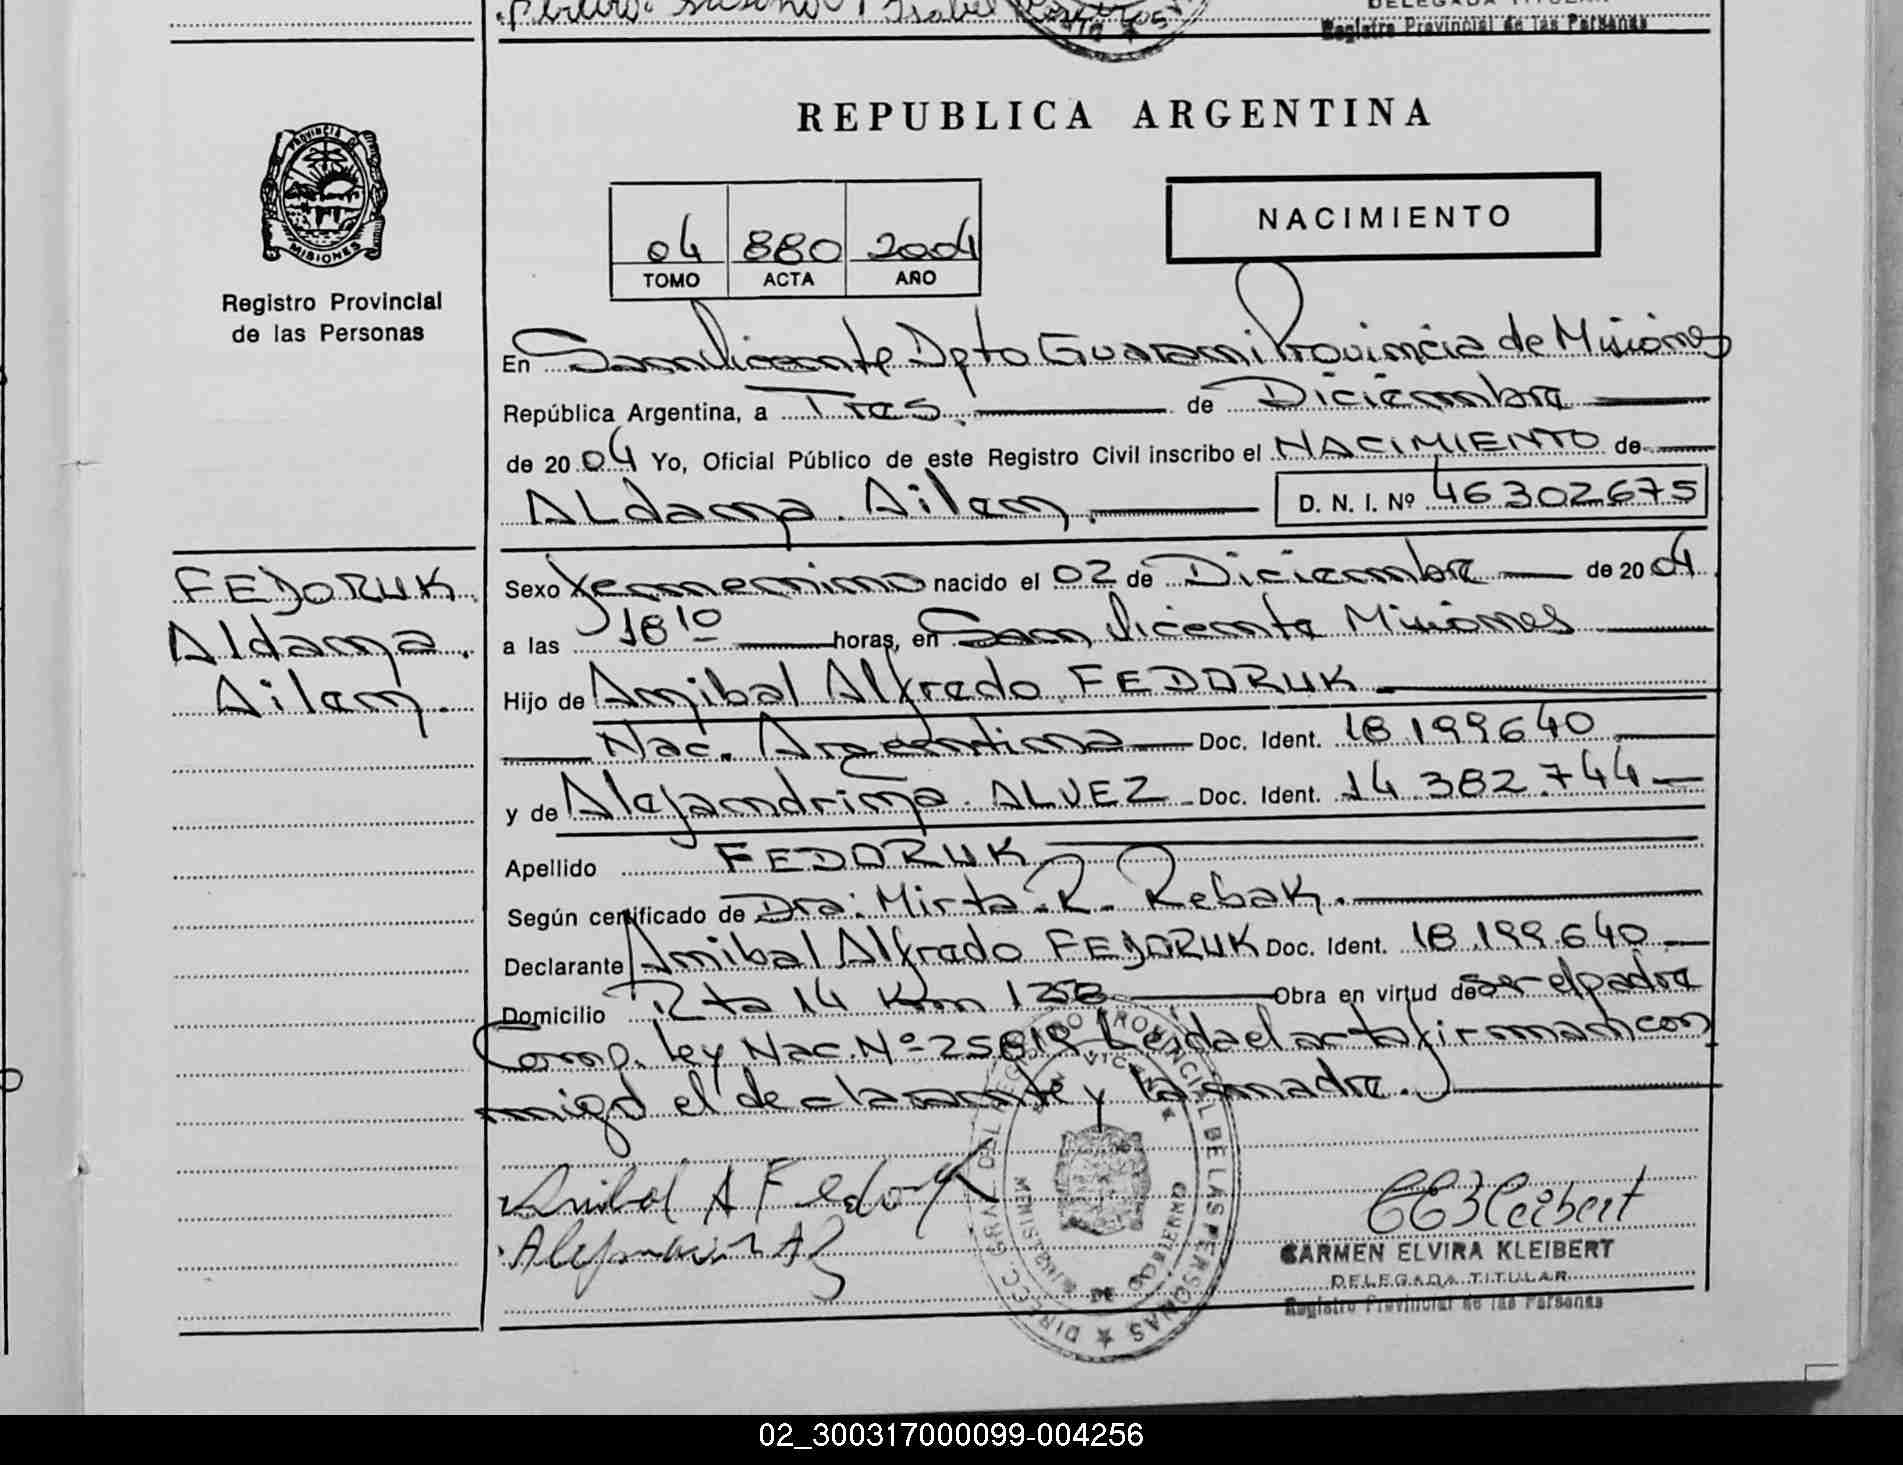 DELEGADA TITULAR
Registro Provincial de las Personas
PROVINCIA DE
MISIONES
Registro Provincial
de las Personas
REPUBLICA ARGENTINA
04 880 2004
TOMO ACTA AÑO
NACIMIENTO
En San Vicente Dpto Guarani Provincia de Misiones
República Argentina, a Tres de Diciembre
de 2004 Yo, Oficial Público de este Registro Civil inscribo el NACIMIENTO de
ALdana Ailen D. N. I. Nº 46302675
FEDORUK
Aldana
Ailen
Sexo Femenino nacido el 02 de Diciembre de 2004
a las 18 10 horas, en San Vicente Misiones
Hijo de Anibal Alfredo FEDORUK
Nac. Argentina Doc. Ident. 18.199640
y de Alejandrina ALVEZ Doc. Ident. 14.382.744
Apellido FEDORUK
Según certificado de Dra: Mirta R. Rebak
Declarante Anibal Alfredo FEDORUK Doc. Ident. 18.199.640
Domicilio Rta 14 Km Obra en virtud de ser el padre
Comp. Ley Nac. Nº 25819 Leida el acta firman con
migo el declarante y la madre.
Anibal A Fedoruk
CARMEN ELVIRA KLEIBERT
DELEGADA TITULAR
Registro Provincial de las Personas
DIRECC. GRAL. DEL REGISTRO PROVINCIAL DE LAS PERSONAS
MINISTERIO DE GOBIERNO
02_300317000099-004256